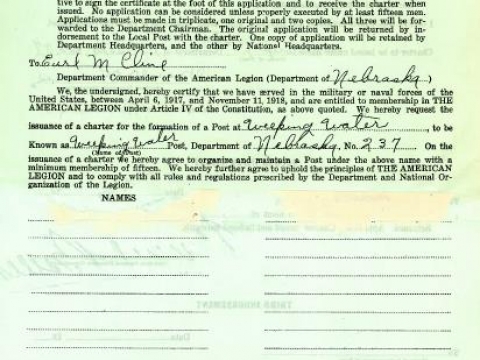 tive to sign the certificate at the foot of this application and to receive the charter when
issued. No application can be considered unless properly executed by at least fifteen men.
Applications must be made in triplicate, one original and two copies. All three will be for-
warded to the Department Chairman. The original application will be returned by in-
dorsement to the Local Post with the charter. One copy of application will be retained by
Department Headquarters, and the other by National Headquarters.
To Earl M Cline
Department Commander of the American Legion (Department of Nebraska)
We, the undersigned, hereby certify that we have served in the military or naval forces of the
United States, between April 6, 1917, and November 11, 1918, and are entitled to membership in THE
AMERICAN LEGION under Article IV of the Constitution, as above quoted. We hereby request the
issuance of a charter for the formation of a Post at Weeping Water, to be
Known as Weeping Water Post, Department of Nebraska, No. 237. On the
(Name of Post)
issuance of a charter we hereby agree to organize and maintain a Post under the above name with a
minimum membership of fifteen. We hereby further agree to uphold the principles of THE AMERICAN
LEGION and to comply with all rules and regulations prescribed by the Department and National Or-
ganization of the Legion.
NAMES